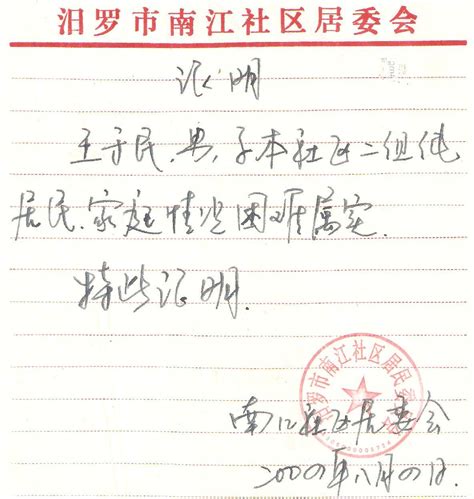 汨罗市南江社区居委会
证明
王于民,男,子本社区二组纯
居民,家庭情况困难属实.
特此证明.
汨罗市南江社区居民委员会
南江社区居委会
200四年八月四日.